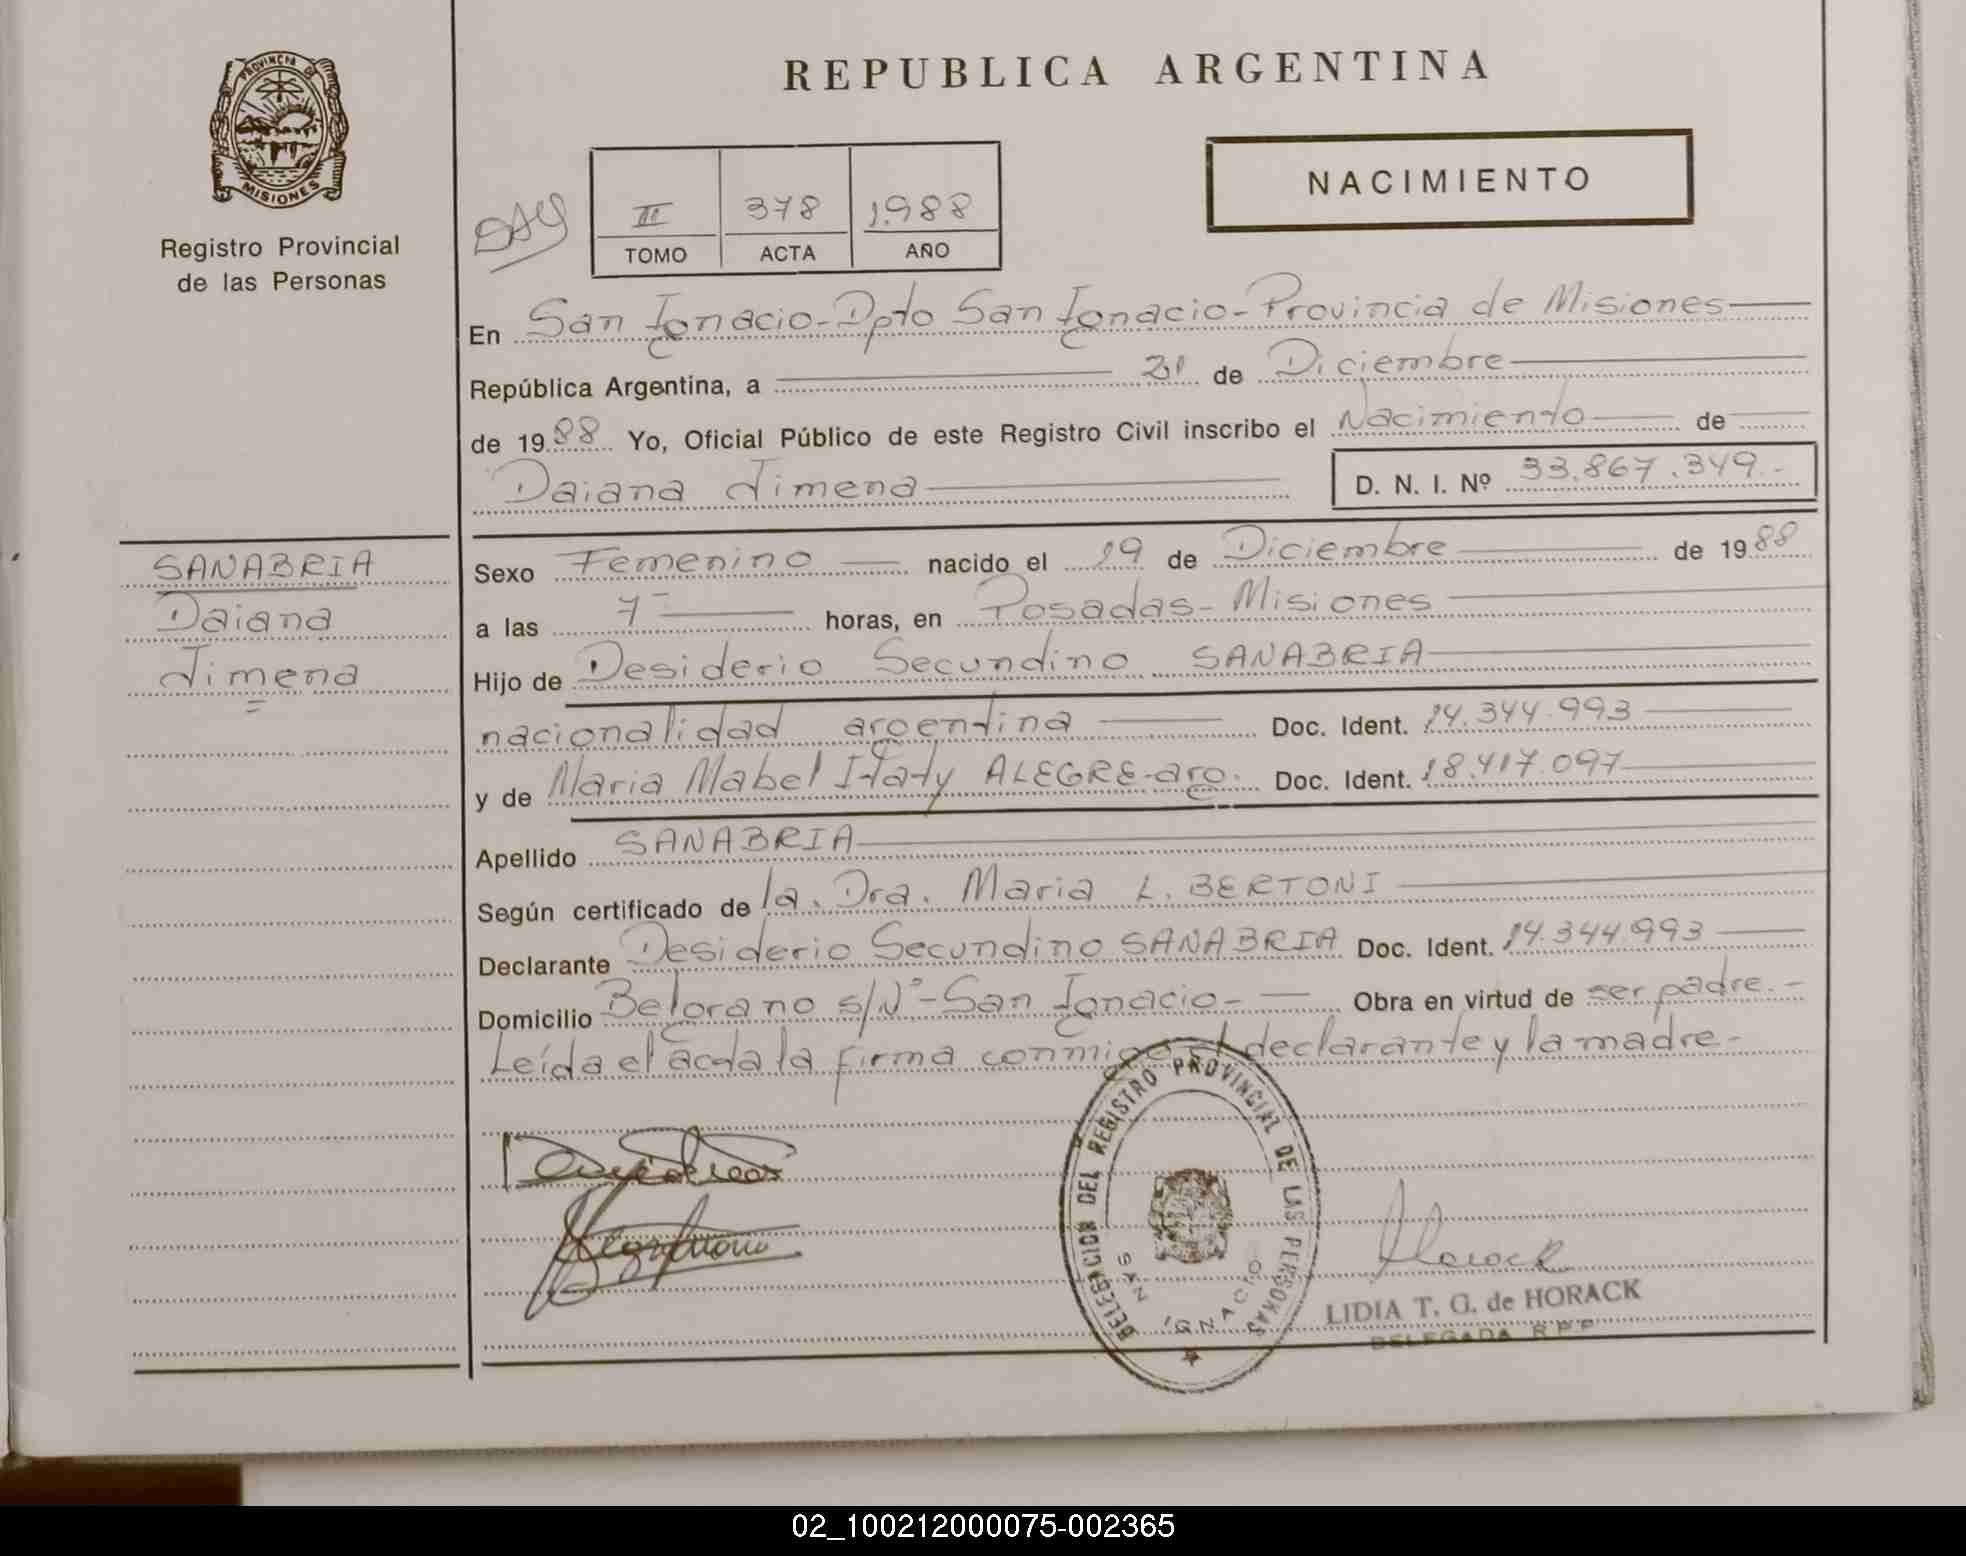 PROVINCIA DE
MISIONES
Registro Provincial
de las Personas
REPUBLICA ARGENTINA
NACIMIENTO
II 378 1.988
TOMO ACTA AÑO
En San Ignacio - Dpto San Ignacio - Provincia de Misiones
República Argentina, a 21 de Diciembre
de 1988 Yo, Oficial Público de este Registro Civil inscribo el Nacimiento de
Daiana Jimena D. N. I. Nº 33.867.349.-
SANABRIA
Daiana
Jimena
Sexo Femenino nacido el 19 de Diciembre de 1988
a las 7- horas, en Posadas - Misiones
Hijo de Desiderio Secundino SANABRIA
nacionalidad argentina Doc. Ident. 14.344.993
y de Maria Mabel Itaty ALEGRE - arg. Doc. Ident. 18.417.097
Apellido SANABRIA
Según certificado de la Dra. Maria L. BERTONI
Declarante Desiderio Secundino SANABRIA Doc. Ident. 14.344.993
Domicilio Belgrano s/Nº - San Ignacio - Obra en virtud de ser padre.-
Leída el acta la firma conmigo el declarante y la madre-
DELEGACION DEL REGISTRO PROVINCIAL DE LAS PERSONAS
SAN IGNACIO
Horack
LIDIA T. G. de HORACK
DELEGADA R.P.P
02_100212000075-002365